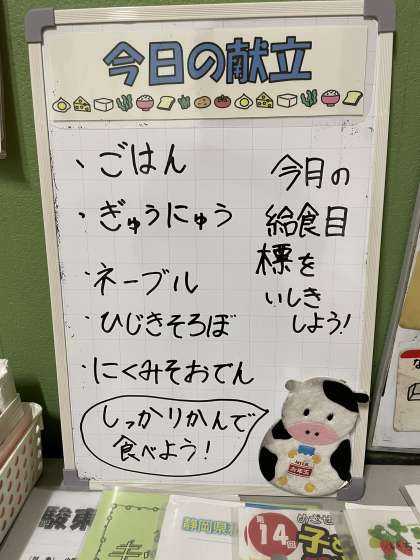 今日の献立
・ごはん
・ぎゅうにゅう
・ネーブル
・ひじきそろぼ
・にくみそおでん
今月の
給食目
標を
いしき
しよう！
しっかりかんで
食べよう！
MILK
駿東
静岡県
第14回
めざせ
子ど